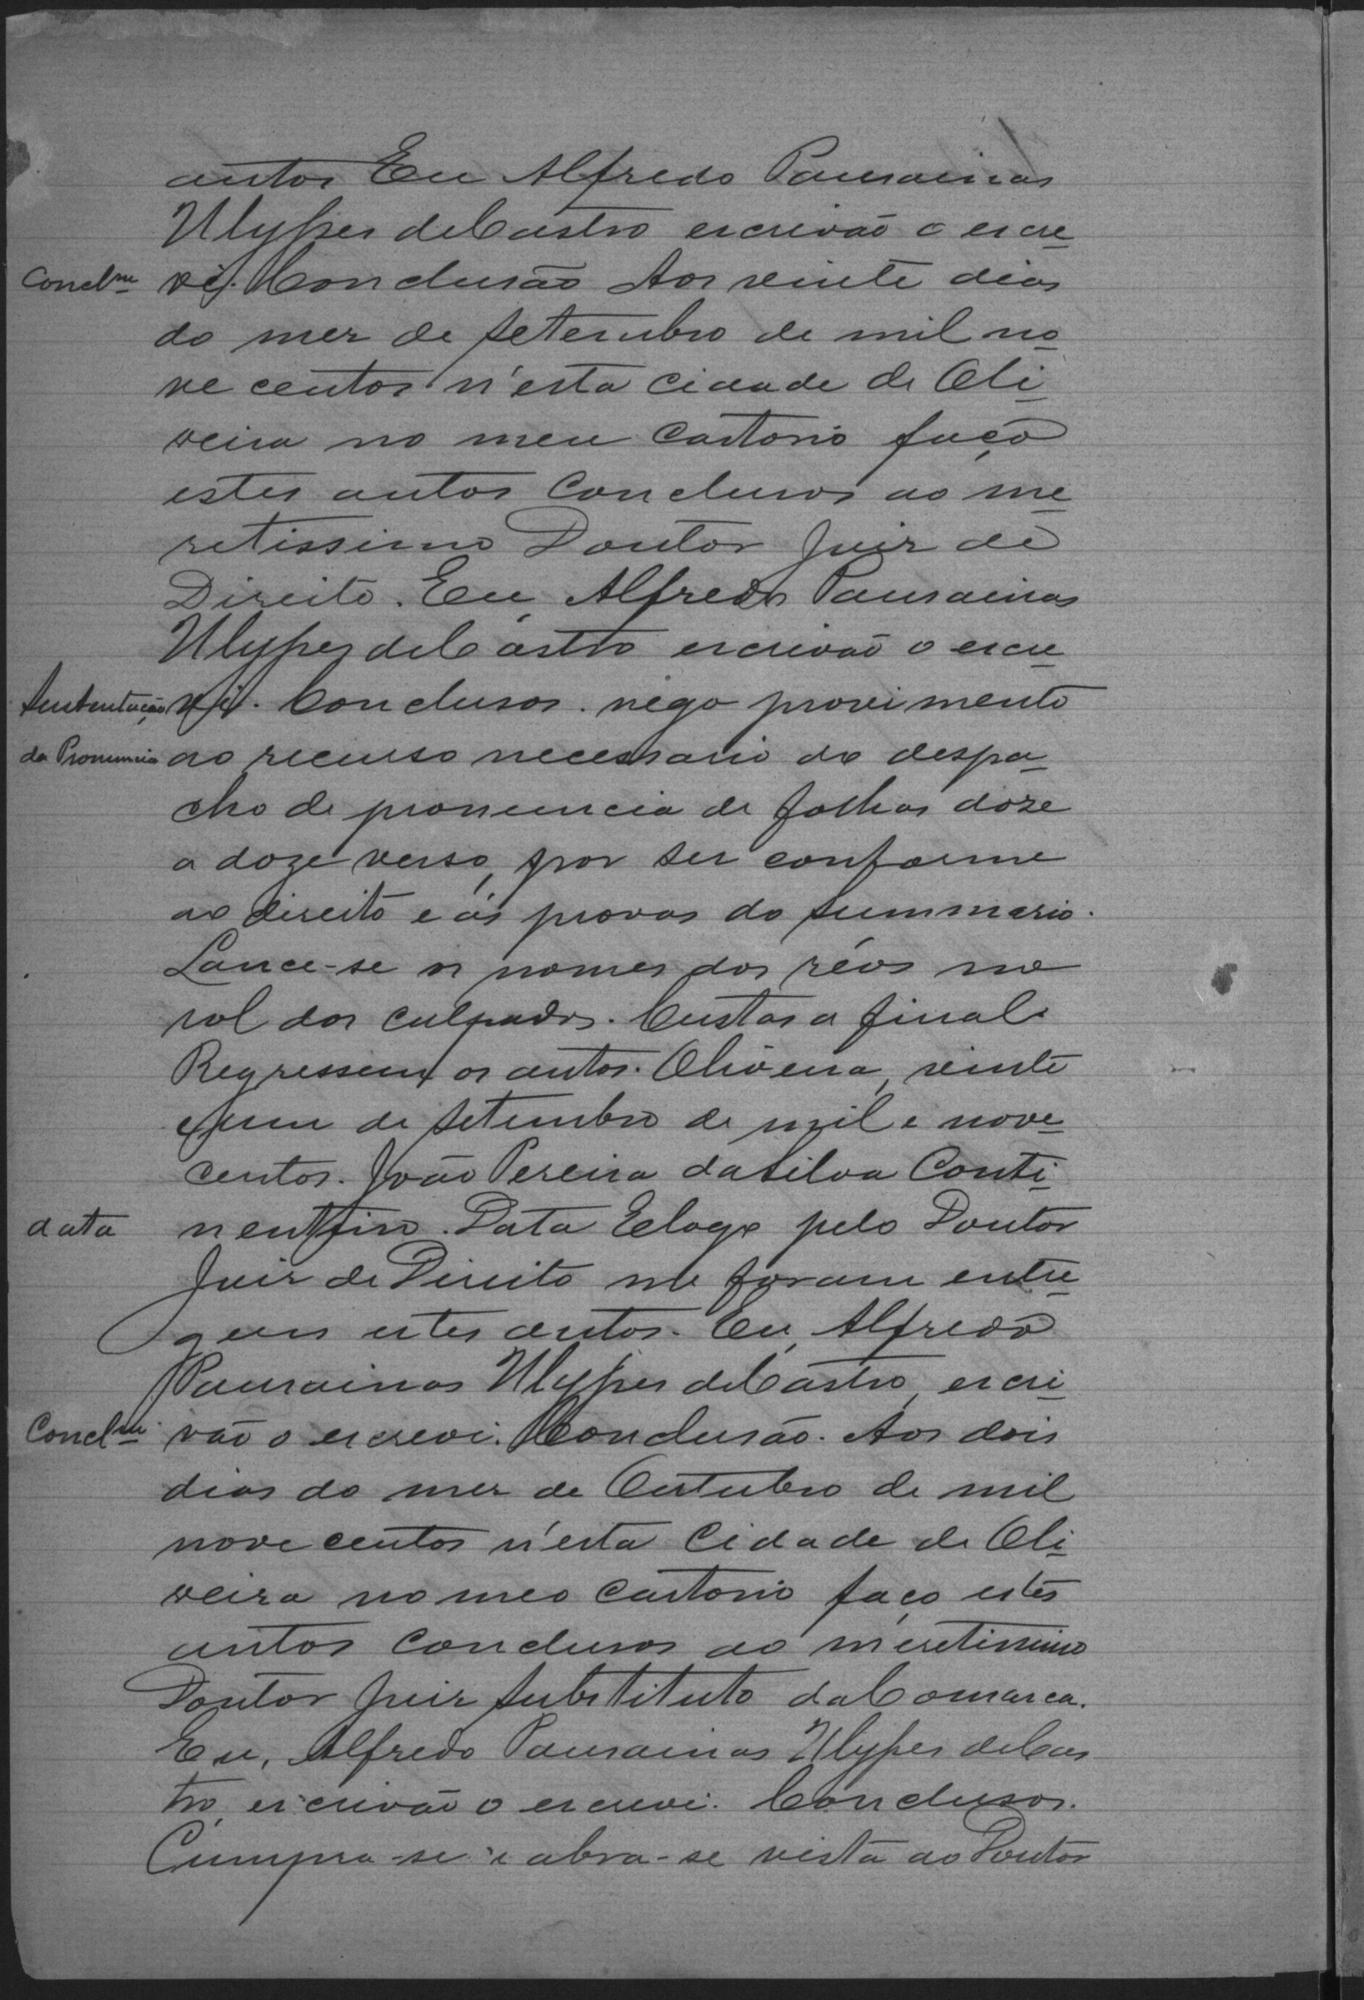 autos Eu Alfredo Pausanias
Ulysses de Castro escrivão o escre-
Conclm vi. Conclusão Aos vinte dias
do mez de Setembro de mil no-
ve centos n'esta cidade de Oli-
veira no meu Cartorio faço
estes autos Conclusos ao me-
retissimo Doutor Juiz de
Direito. Eu, Alfredo Pausanias
Ulysses de Castro escrivão o escre-
Sustentação vi. Conclusos. nego provimento
da Pronuncia ao recurso necessario do despa-
cho de pronuncia de folhas doze
a doze verso, por ser conforme
ao direito e ás provas do summario.
Lance-se os nomes dos réos no
rol dos culpados. Custas a final.
Regressem os autos. Oliveira, vinte
e um de Setembro de mil e nove-
centos. João Pereira da Silva Conti-
data nentino. Data E logo pelo Doutor
Juiz de Direito me foram entre-
gues estes autos. Eu, Alfredo
Pausanias Ulysses de Castro, escri-
Conclm vão o escrevi. Conclusão. Aos dois
dias do mez de Outubro de mil
nove centos n'esta Cidade de Oli-
veira no meo Cartorio faço estes
autos Conclusos ao meretissimo
Doutor Juiz Substituto da Comarca.
Eu, Alfredo Pausanias Ulysses de Cas
tro, escrivão o escrevi. Conclusos.
Cumpra-se e abra-se vista ao Doutor